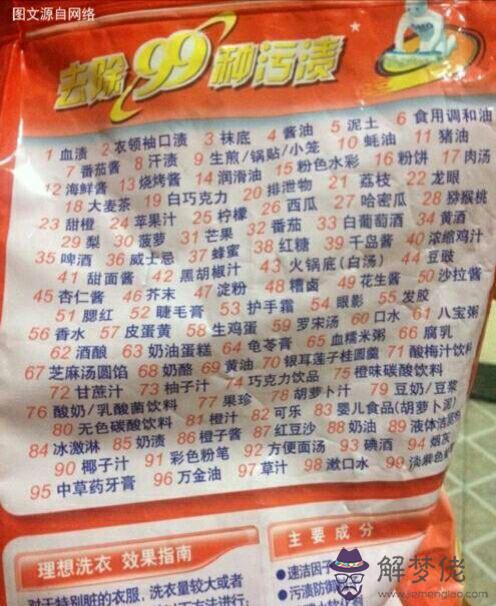 图文源自网络
去除99种污渍
1 血渍 2 衣领袖口渍 3 抹底 4 酱油 5 泥土 6 食用调和油
7 番茄酱 8 汗渍 9 生煎/锅贴/小笼 10 蚝油 11 猪油
12 海鲜酱 13 烧烤酱 14 润滑油 15 粉色水彩 16 粉饼 17 肉汤
18 大麦茶 19 白巧克力 20 排泄物 21 荔枝 22 龙眼
23 甜橙 24 苹果汁 25 柠檬 26 西瓜 27 哈密瓜 28 猕猴桃
29 梨 30 菠萝 31 芒果 32 番茄 33 白葡萄酒 34 黄酒
35 啤酒 36 威士忌 37 蜂蜜 38 红糖 39 千岛酱 40 浓缩鸡汁
41 甜面酱 42 黑胡椒汁 43 火锅底(白汤) 44 豆豉
45 杏仁酱 46 芥末 47 淀粉 48 糟卤 49 花生酱 50 沙拉酱
51 腮红 52 睫毛膏 53 护手霜 54 眼影 55 发胶
56 香水 57 皮蛋黄 58 生鸡蛋 59 罗宋汤 60 口水 61 八宝粥
62 酒酿 63 奶油蛋糕 64 龟苓膏 65 血糯米粥 66 腐乳
67 芝麻汤圆馅 68 奶酪 69 黄油 70 银耳莲子桂圆羹 71 酸梅汁饮料
72 甘蔗汁 73 柚子汁 74 巧克力饮品 75 橙味碳酸饮料
76 酸奶/乳酸菌饮料 77 果珍 78 胡萝卜汁 79 豆奶/豆浆
80 无色碳酸饮料 81 橙汁 82 可乐 83 婴儿食品(胡萝卜泥)
84 冰激淋 85 奶渍 86 橙子酱 87 红豆沙 88 奶油 89 液体洁
90 椰子汁 91 彩色粉笔 92 方便面汤 93 碘酒 94 烟灰
95 中草药牙膏 96 万金油 97 草汁 98 漱口水 99 淡紫色
理想洗衣 效果指南
对于特别脏的衣服，洗衣量较大或者
主要成分
速洁因子
污渍防御
解梦佬
www.jiemenglao.com